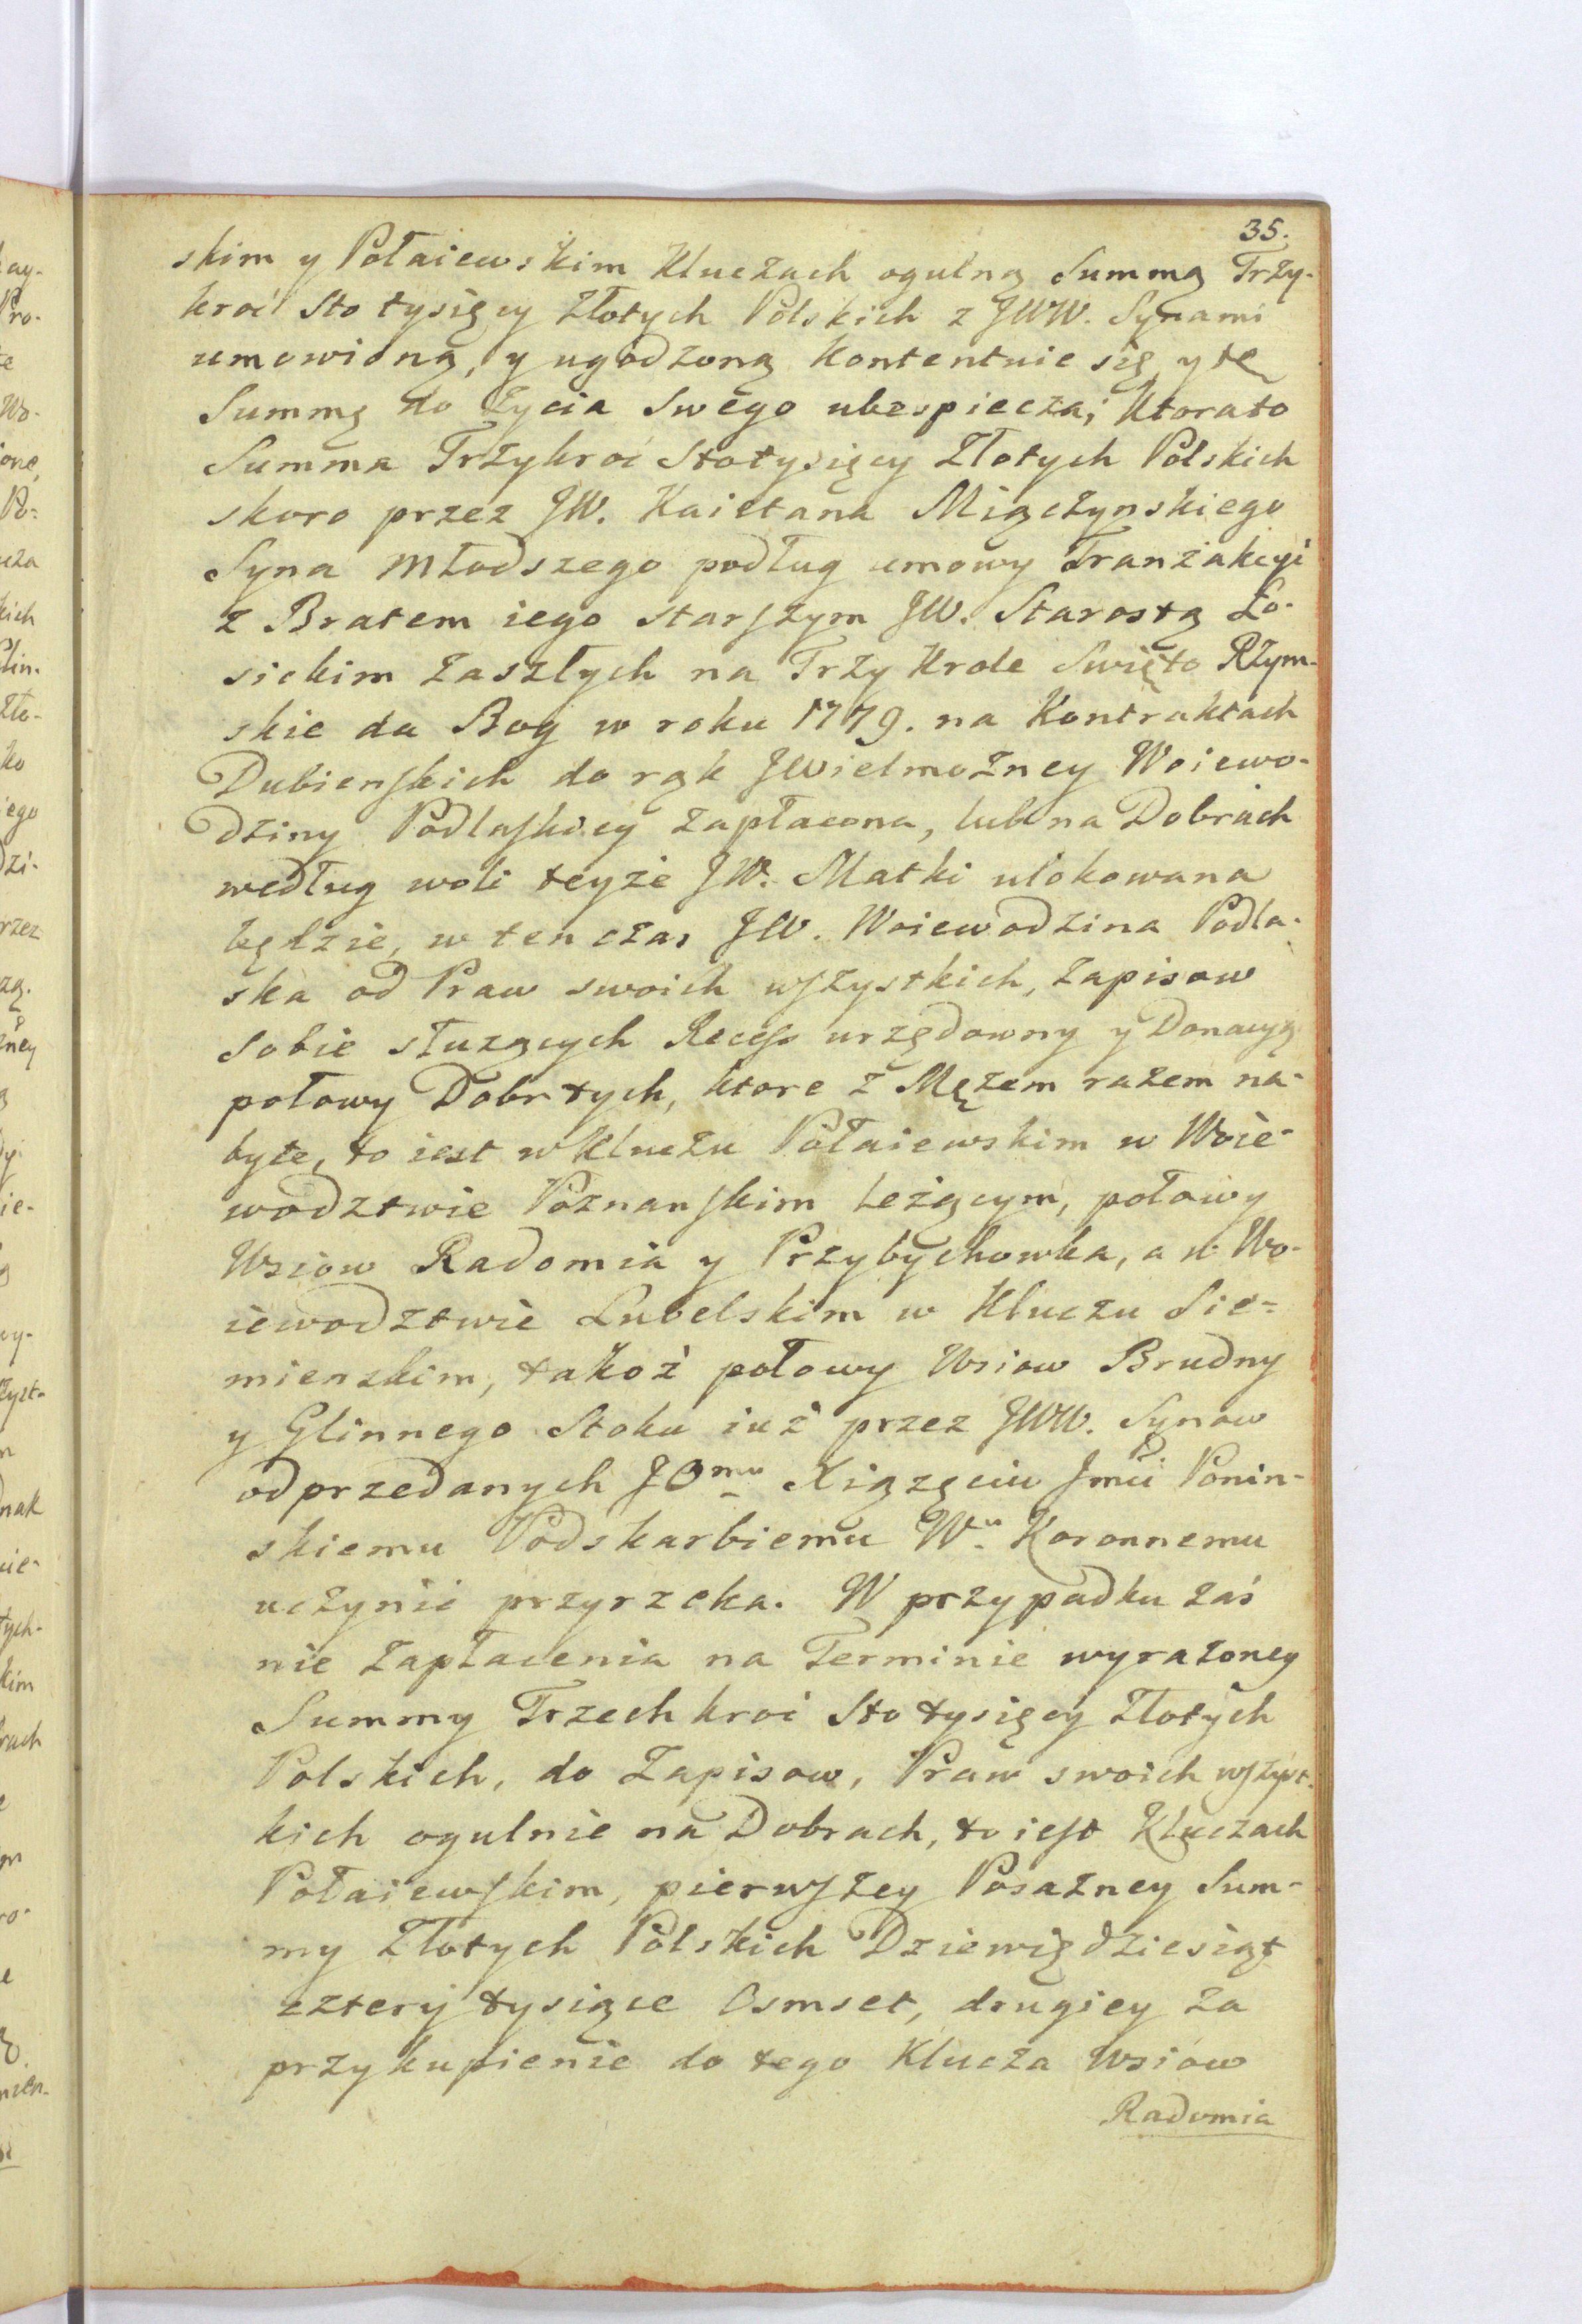 35.
skim y Połaiewskim Kluczach ogulną Summą Trzy-
kroć Sto tysięcy Złotych Polskich z JWW. Synami
umowioną, y ugodzoną kontentuie się, y tę
Summę do Zycia Swego ubespiecza; Ktorato
Summa Trzykroć Stotysięcy Złotych Polskich
skoro przez JW. Kaietana Miączynskiego
Syna Młodszego podług umowy Tranzakcyi
z Bratem iego starszym JW. Starostą Ło-
sickim zaszłych na Trzy Krole Swięto Rzym-
skie da Bog w roku 1779. na Kontraktach
Dubienskich do rąk JWielmozney Woiewo-
dziny Podlaskiey zapłacona, lub na Dobrach
według woli teyże JW. Matki ulokowana
będzie, w ten czas JW. Woiewodzina Podla-
ska od Praw swoich wszystkich, Zapisow
Sobie słuzących Recess urzędowny y Donacyą
połowy Dobr tych, ktore z Męzem razem na-
byte, to iest w Kluczu Połaiewskim w Woie-
wodztwie Poznanskim leżącym, połowy
Wsiow Radomia y Przybychowka, a w Wo-
iewodztwie Lubelskim w Kluczu Sie-
mienskim, takoż połowy Wsiow Brudny
y Glinnego Stoku iuż przez JWW. Synow
odprzedanych JOmu Xiązęciu Jmci Ponin-
skiemu Podskarbiemu Wu. Koronnemu
uczynić przyrzeka. W przypadku zaś
nie zapłacenia na Terminie wyrazoney
Summy Trzech kroć Sto tysięcy Złotych
Polskich, do Zapisow, Praw swoich wszyst-
kich ogulnie na Dobrach, to iest Kluczach
Połaiewskim, pierwszey Posazney Sum-
my Złotych Polskich Dziewiędziesiąt
cztery tysiące Osmset, drugiey za
przykupienie do tego Klucza Wsiow
Radomia